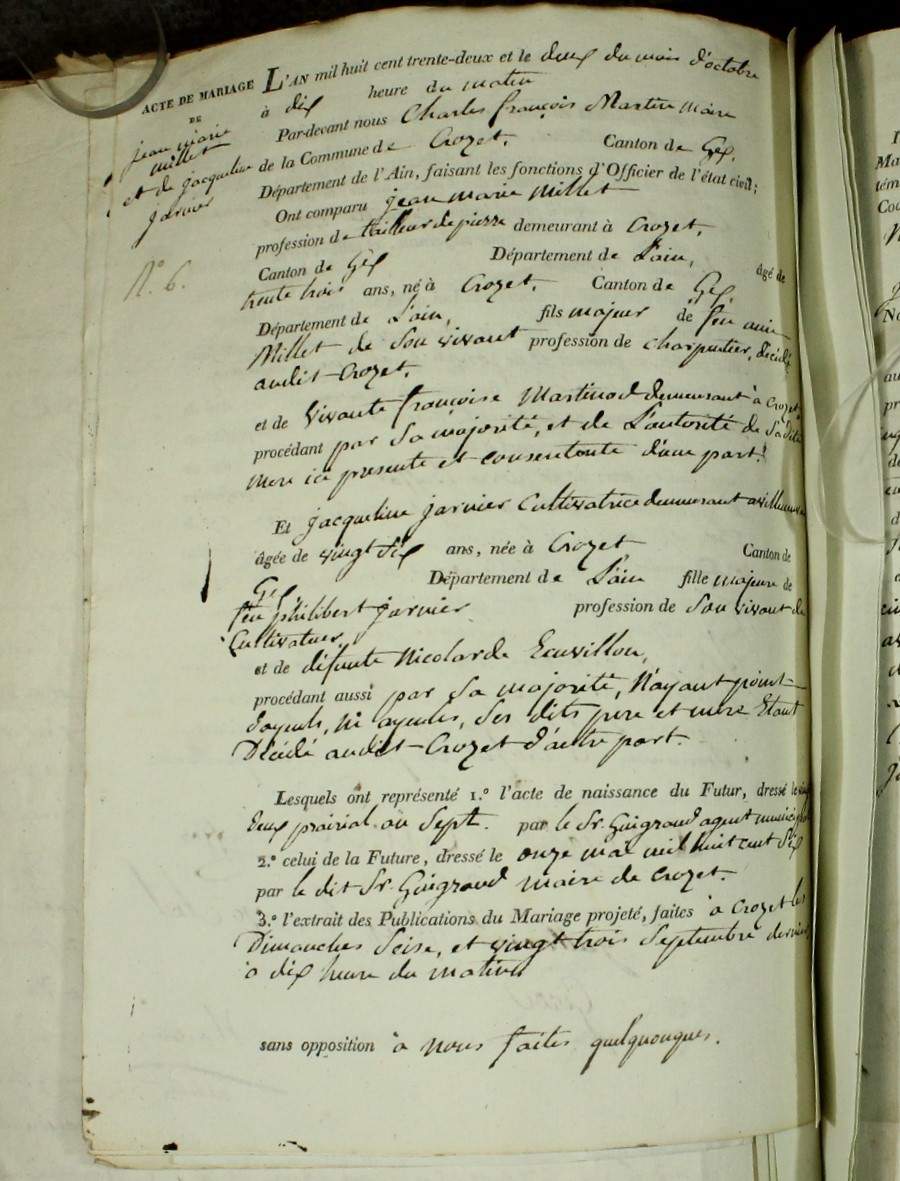 ACTE DE MARIAGE
DE
jean marie
millet
et de jacqueline
jarnier
N.° 6.
L'AN mil huit cent trente-deux et le deux du mois d'octobre
à dix heure du matin
Par-devant nous Charles françois Martin maire
de la Commune de Crozet. Canton de Gex.
Département de l'Ain, faisant les fonctions d'Officier de l'état civil;
Ont comparu jean marie Millet
profession de tailleur de pierre demeurant à Crozet.
Canton de Gex Département de L'ain, âgé de
trente trois ans, né à Crozet. Canton de Gex.
Département de L'ain, fils majeur de feu aimé
Millet de Son vivant profession de charpentier, décédé
audit Crozet.
et de vivante françoise Martinod demeurant à Crozet,
procédant par Sa majorité, et de L'autorité de Sadite
mere ici presente et consentente d'une part.
Et jacqueline jarnier Cultivatrice demeurant
âgée de vingt Six ans, née à Crozet Canton de
Gex. Département de L'ain fille majeure de
feu philibert jarnier profession de Son vivant de
Cultivateur,
et de défunte Nicolarde Ecuvillon,
procédant aussi par Sa majorité, N'ayant point
d'ayeuls, Ni ayeules, Ses dits pere et mere Etant
Décédé audit Crozet d'autre part.
Lesquels ont représenté 1.° l'acte de naissance du Futur, dressé le vingt
deux prairial an Sept. par le Sr. Guigrand agent municipal
2.° celui de la Future, dressé le onze mai mil huit cent Six
par le dit Sr. Guigrand maire de Crozet.
3.° l'extrait des Publications du Mariage projeté, faites à Crozet les
Dimanches Seise, et vingt trois Septembre dernier
à dix heure du matin
sans opposition à nous faites quelquonques.